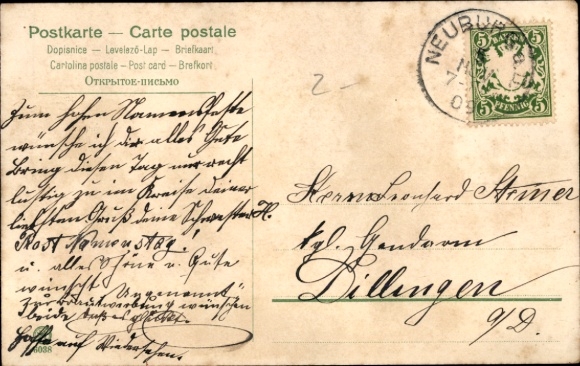 Postkarte – Carte postale
Dopisnice – Levelező-Lap – Brefkaart
Cartolina postale – Post card – Brefkort
Открытое-письмо
Zum hohen Namensfeste
wünsche ich dir alles Gute
Bring diesen Tag nur recht
lustig zu im Kreise deiner
liebsten Gruß deine Schwester H.
Prost Namenstag!
u. alles Schöne u. Gute
wünscht "Ungenannt"
wünschen
beide
Hoffe auf Wiedersehen.
6038
2-
NEUBURG
5 5
PFENNIG
5 5
Herrn Leonhard
kgl. Gendarm
Dillingen
a/D.